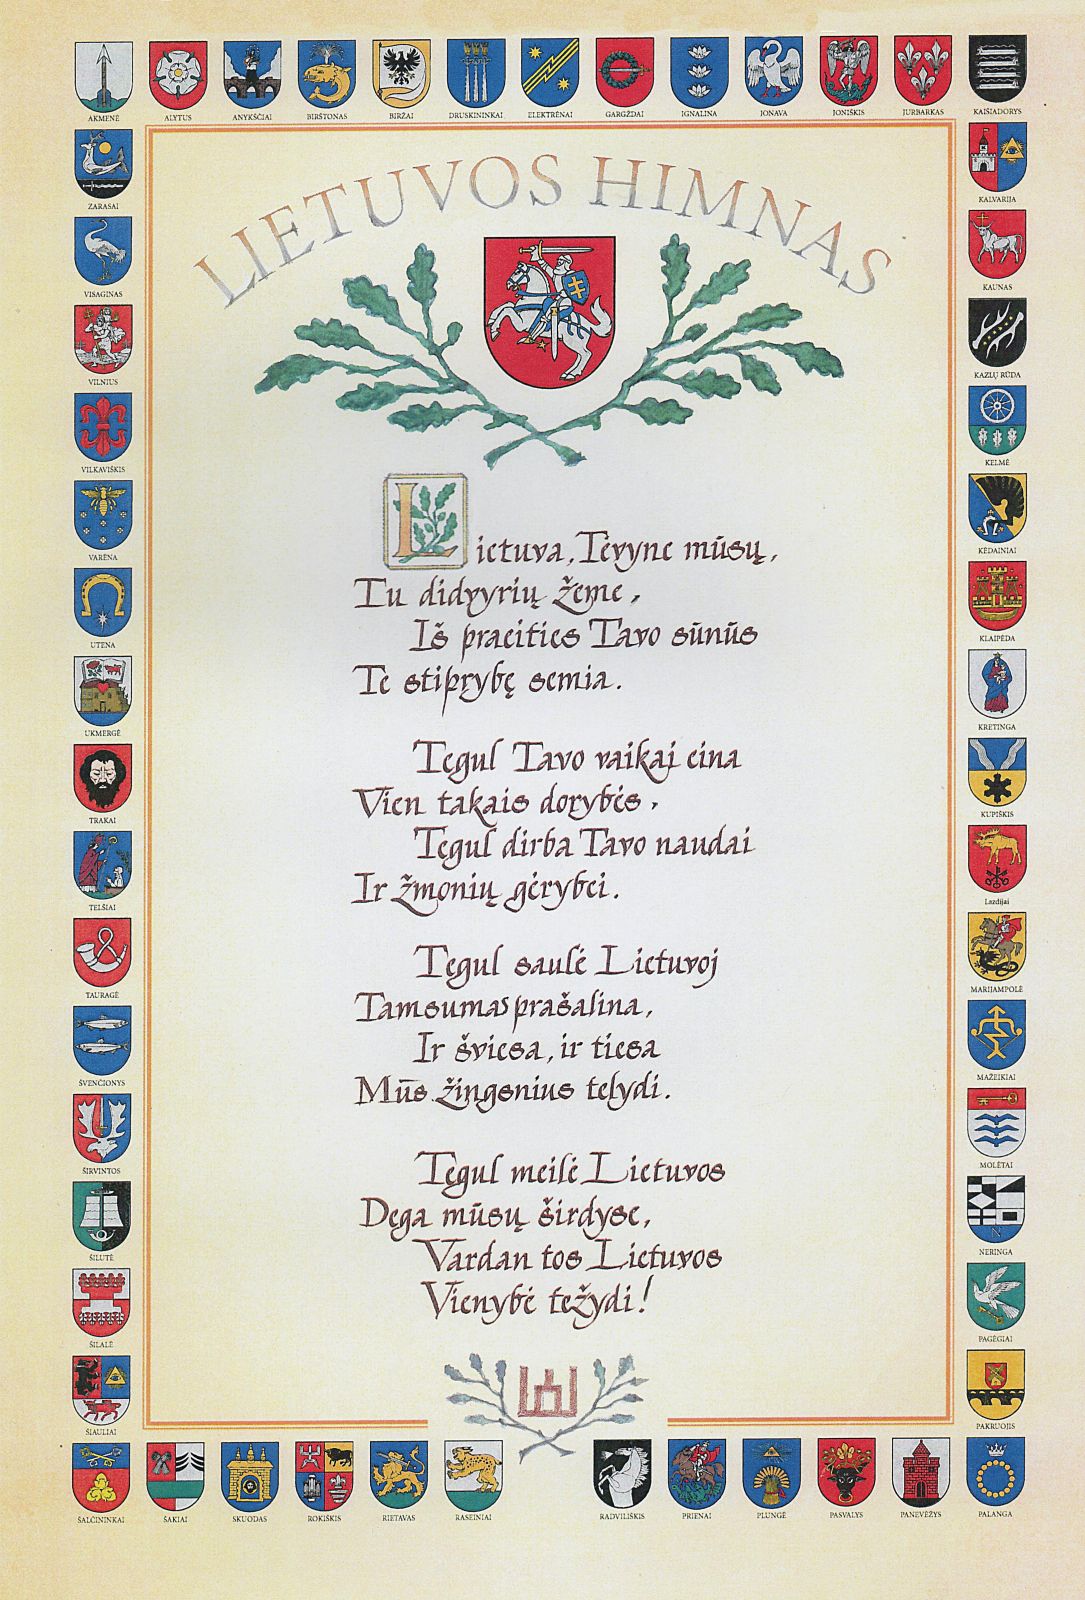 AKMENĖ
ALYTUS
ANYKŠČIAI
BIRŠTONAS
BIRŽAI
DRUSKININKAI
ELEKTRĖNAI
GARGŽDAI
IGNALINA
JONAVA
JONIŠKIS
JURBARKAS
KAIŠIADORYS
ZARASAI
VISAGINAS
VILNIUS
VILKAVIŠKIS
VARĖNA
UTENA
UKMERGĖ
TRAKAI
TELŠIAI
TAURAGĖ
ŠVENČIONYS
ŠIRVINTOS
ŠILUTĖ
ŠILALĖ
ŠIAULIAI
LIETUVOS HIMNAS
Lietuva, Tėvyne mūsų,
Tu didvyrių žeme,
Iš praeities Tavo sūnūs
Te stiprybę semia.
Tegul Tavo vaikai eina
Vien takais dorybės,
Tegul dirba Tavo naudai
Ir žmonių gėrybei.
Tegul saulė Lietuvoj
Tamsumas prašalina,
Ir šviesa, ir tiesa
Mūs žingsnius telydi.
Tegul meilė Lietuvos
Dega mūsų širdyse,
Vardan tos Lietuvos
Vienybė težydi!
KALVARIJA
KAUNAS
KAZLŲ RŪDA
KELMĖ
KĖDAINIAI
KLAIPĖDA
KRETINGA
KUPIŠKIS
Lazdijai
MARIJAMPOLĖ
MAŽEIKIAI
MOLĖTAI
N
NERINGA
PAGĖGIAI
PAKRUOJIS
ŠALČININKAI
ŠAKIAI
SKUODAS
ROKIŠKIS
RIETAVAS
RASEINIAI
RADVILIŠKIS
PRIENAI
PLUNGĖ
PASVALYS
PANEVĖŽYS
PALANGA